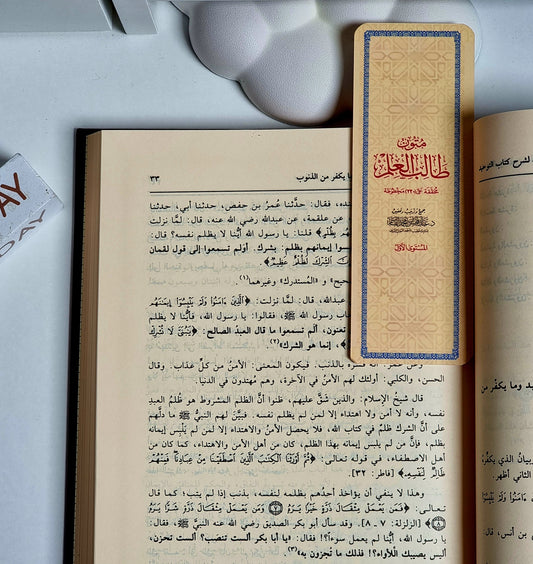 ٣٣
ا يكفر من الذنوب
لشرح كتاب التوحيد
متون
طالب العلم
المستوى الأول
ـده، فقال: حدَّثنا عُمرُ بن حفص، حدثنا أبي، حدثنا
عن علقمة، عن عبدالله رضي الله عنه، قال: لمَّا نزلت
بِظُلْمٍ﴾ قلنا: يا رسول الله أيُّنا لا يظلم نفسه؟ قال:
إيمانهم بظلم: بشرك. أولم تسمعوا إلى قول لقمان
الشِّرْكَ لَظُلْمٌ عَظِيمٌ﴾
حيح» و«المُستدرك» وغيرهما(١).
عبدالله، قال: لـمَّا نزلت: ﴿الَّذِينَ آمَنُوا وَلَمْ يَلْبِسُوا إِيمَانَهُم
اب رسول الله ﷺ، فقالوا: يا رسول الله، فأيُّنا لا يظلم
تعنون، ألم تسمعوا ما قال العبدُ الصالح: ﴿يَا بُنَيَّ لَا تُشْرِكْ
﴾، إنما هو الشرك»(٢)
بالذنب: فيكون المعنى: الأمنُ من كلِّ عذاب. وقال
الحسن، والكلبي: أولئك لهم الأمنُ في الآخرة، وهم مُهتدون في الدنيا.
قال شيخُ الإسلام: والذين شقَّ عليهم، ظنوا أنَّ الظلم المشروط هو ظُلم العبدِ
نفسه، وأنه لا أمن ولا اهتداء إلا لمن لم يظلم نفسه. فبيَّن لهم النبيُّ ﷺ ما دلَّهم
على أنَّ الشرك ظلمٌ في كتاب الله، فلا يحصل الأمنُ والاهتداء إلا لمن لم يلبس إيمانه
بظلم، فإنَّ من لم يلبس إيمانه بهذا الظلم، كان من أهل الأمن والاهتداء، كما كان من
أهل الاصطفاء، في قوله تعالى: ﴿ثُمَّ أَوْرَثْنَا الْكِتَابَ الَّذِينَ اصْطَفَيْنَا مِنْ عِبَادِنَا فَمِنْهُمْ
ظَالِمٌ لِّنَفْسِهِ﴾ [فاطر: ٣٢].
وهذا لا ينفي أن يؤاخذ أحدُهم بظلمه لنفسه، بذنب إذا لم يتب؛ كما قال
تعالى: ﴿فَمَن يَعْمَلْ مِثْقَالَ ذَرَّةٍ خَيْرًا يَرَهُ ۝٧ وَمَن يَعْمَلْ مِثْقَالَ ذَرَّةٍ شَرًّا يَرَهُ
۝٨﴾ [الزلزلة: ٧ ـ ٨]. وقد سأل أبو بكر الصديق رضي الله عنه النبيَّ ﷺ، فقال:
يا رسول الله، أيُّنا لم يعمل سوءاً؟! فقال: «يا أبا بكر ألست تنصَب؟ ألست تحزن،
أليس يصيبك اللَّأواء؟! فذلك ما تُجزون به»(٣).